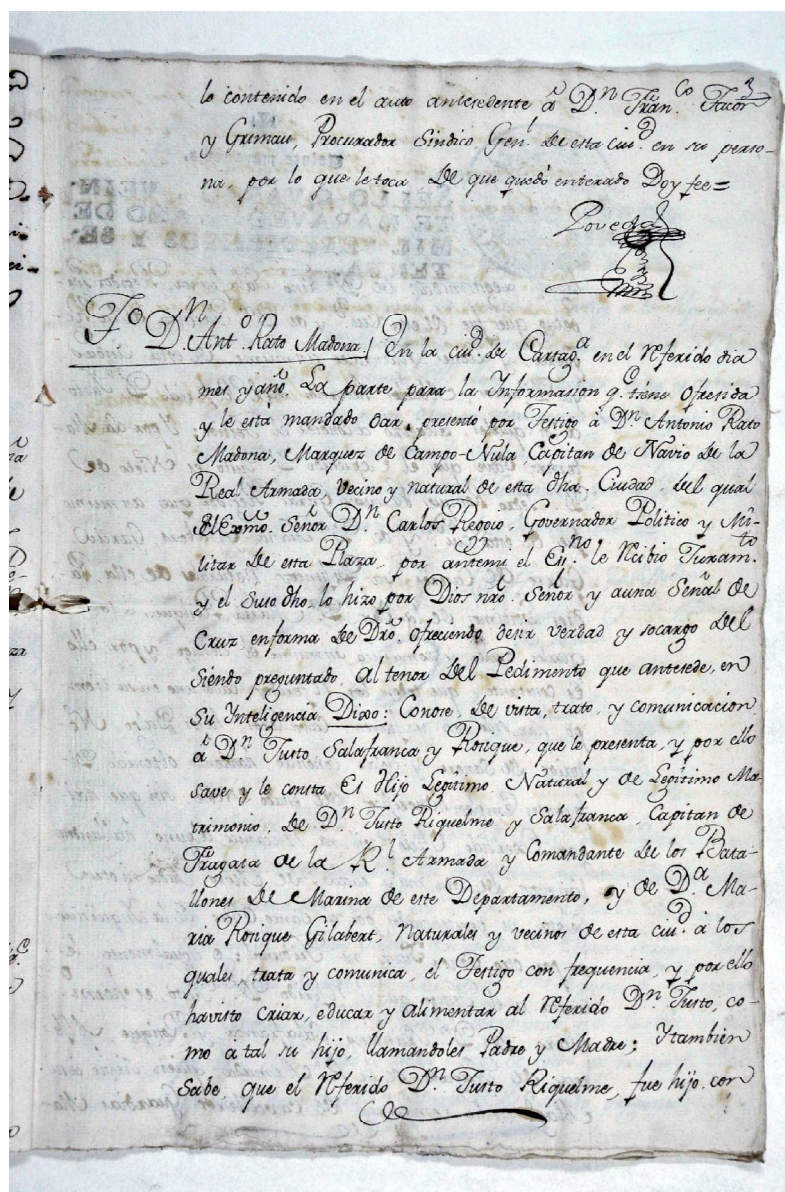 3
lo contenido en el auto antesedente â Dn. Franco. Facon
y Grimau, Procurador Sindico Genl. de esta ciud. en su perso-
na, por lo que le toca, de que quedó enterado Doy fee=
Poveda
To. Dn. Anto. Rato Madona / En la ciud. de Cartaga. en el referido dia
mes y año. La parte para la Informasion q.e tiene ofresida
y le está mandado dar, presentó por Testigo â Dn. Antonio Rato
Madona, Marquez de Campo-Nula, Capitan de Navio de la
Real Armada, vecino y natural de esta dha. Ciudad, del qual
el Exmo. Señor Dn. Carlos Regxio, Governador Politico y Mi-
litar de esta Plaza, por antemi el Esno. le recibio Juramto.
y el suso dho. lo hizo por Dios nro. Señor y auna Señal de
Cruz enforma de Dro. ofreciendo desir verdad y socargo del
siendo preguntado, al tenor del Pedimento que antesede, en
su Inteligencia Dixo: Conose, de vista, trato, y comunicacion
â Dn. Justo Salafranca y Rosique, que le presenta, y por ello
save y le consta Es Hijo Legitimo, Natural y de Legitimo Ma-
trimonio, de Dn. Justo Riquelme y Salafranca, Capitan de
Fragata de la Rl. Armada y Comandante de los Bata-
llones de Marina de este Departamento, y de Da. Ma-
ria Rosique Gilabert, Naturales y vecinos de esta ciud. â los
quales, trata y comunica, el Testigo con frequencia, y por ello
havisto criar, educar y alimentar al referido Dn. Justo, co-
mo â tal su hijo, llamandoles Padre y Madre; Ytambien
Sabe que el referido Dn. Justo Riquelme, fue hijo con